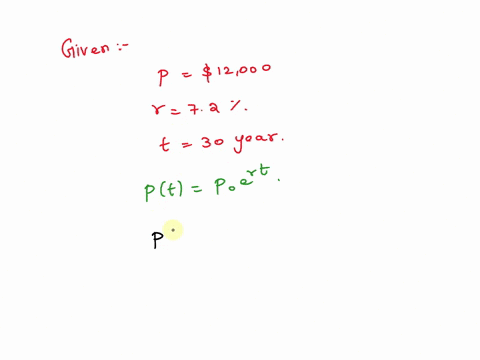 Given :-
P = $12,000
r = 7.2 %.
t = 30 year.
P(t) = P₀ e^{rt}.
P